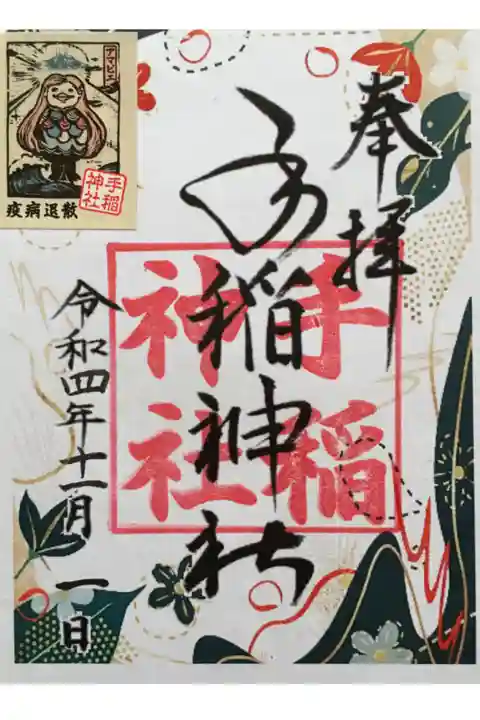 奉拝
手稲神社
手稲
神社
令和四年十一月一日
アマビエ
手稲
神社
疫病退散